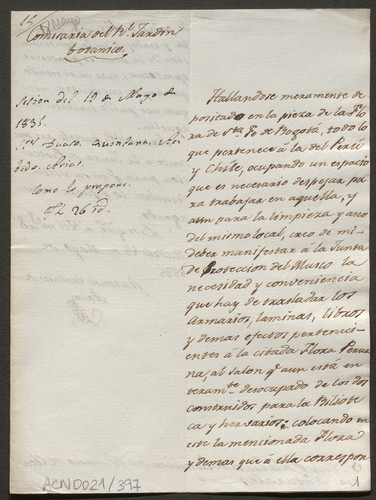 Comisaria del Rl. Jardin
botanico.
sesion del 19 de Mayo de
1835.
Como lo propone.
Hallandose meramente de
positado en la pieza de la Flo
ra de Sta. Fé de Bogotá, todo lo
que pertenece à la del Perú
y Chile, ocupando un espacio
que es necesario despejar pa
ra trabajar en aquella, y
aun para la limpieza y aseo
del mismo local, creo de mi
deber manifestar à la Junta
de Proteccion del Museo la
necesidad y conveniencia
que hay de trasladar los
Armarios, laminas, libros
y demas efectos pertenecí
entes à la citada Flora Perua
na, al salon qe. aun está en
teramte. desocupado de los dos
construidos para la Bibliote
ca y hervarios; colocando en
este la mencionada Flora
y demas que à ella correspon
ACN0021/397
1